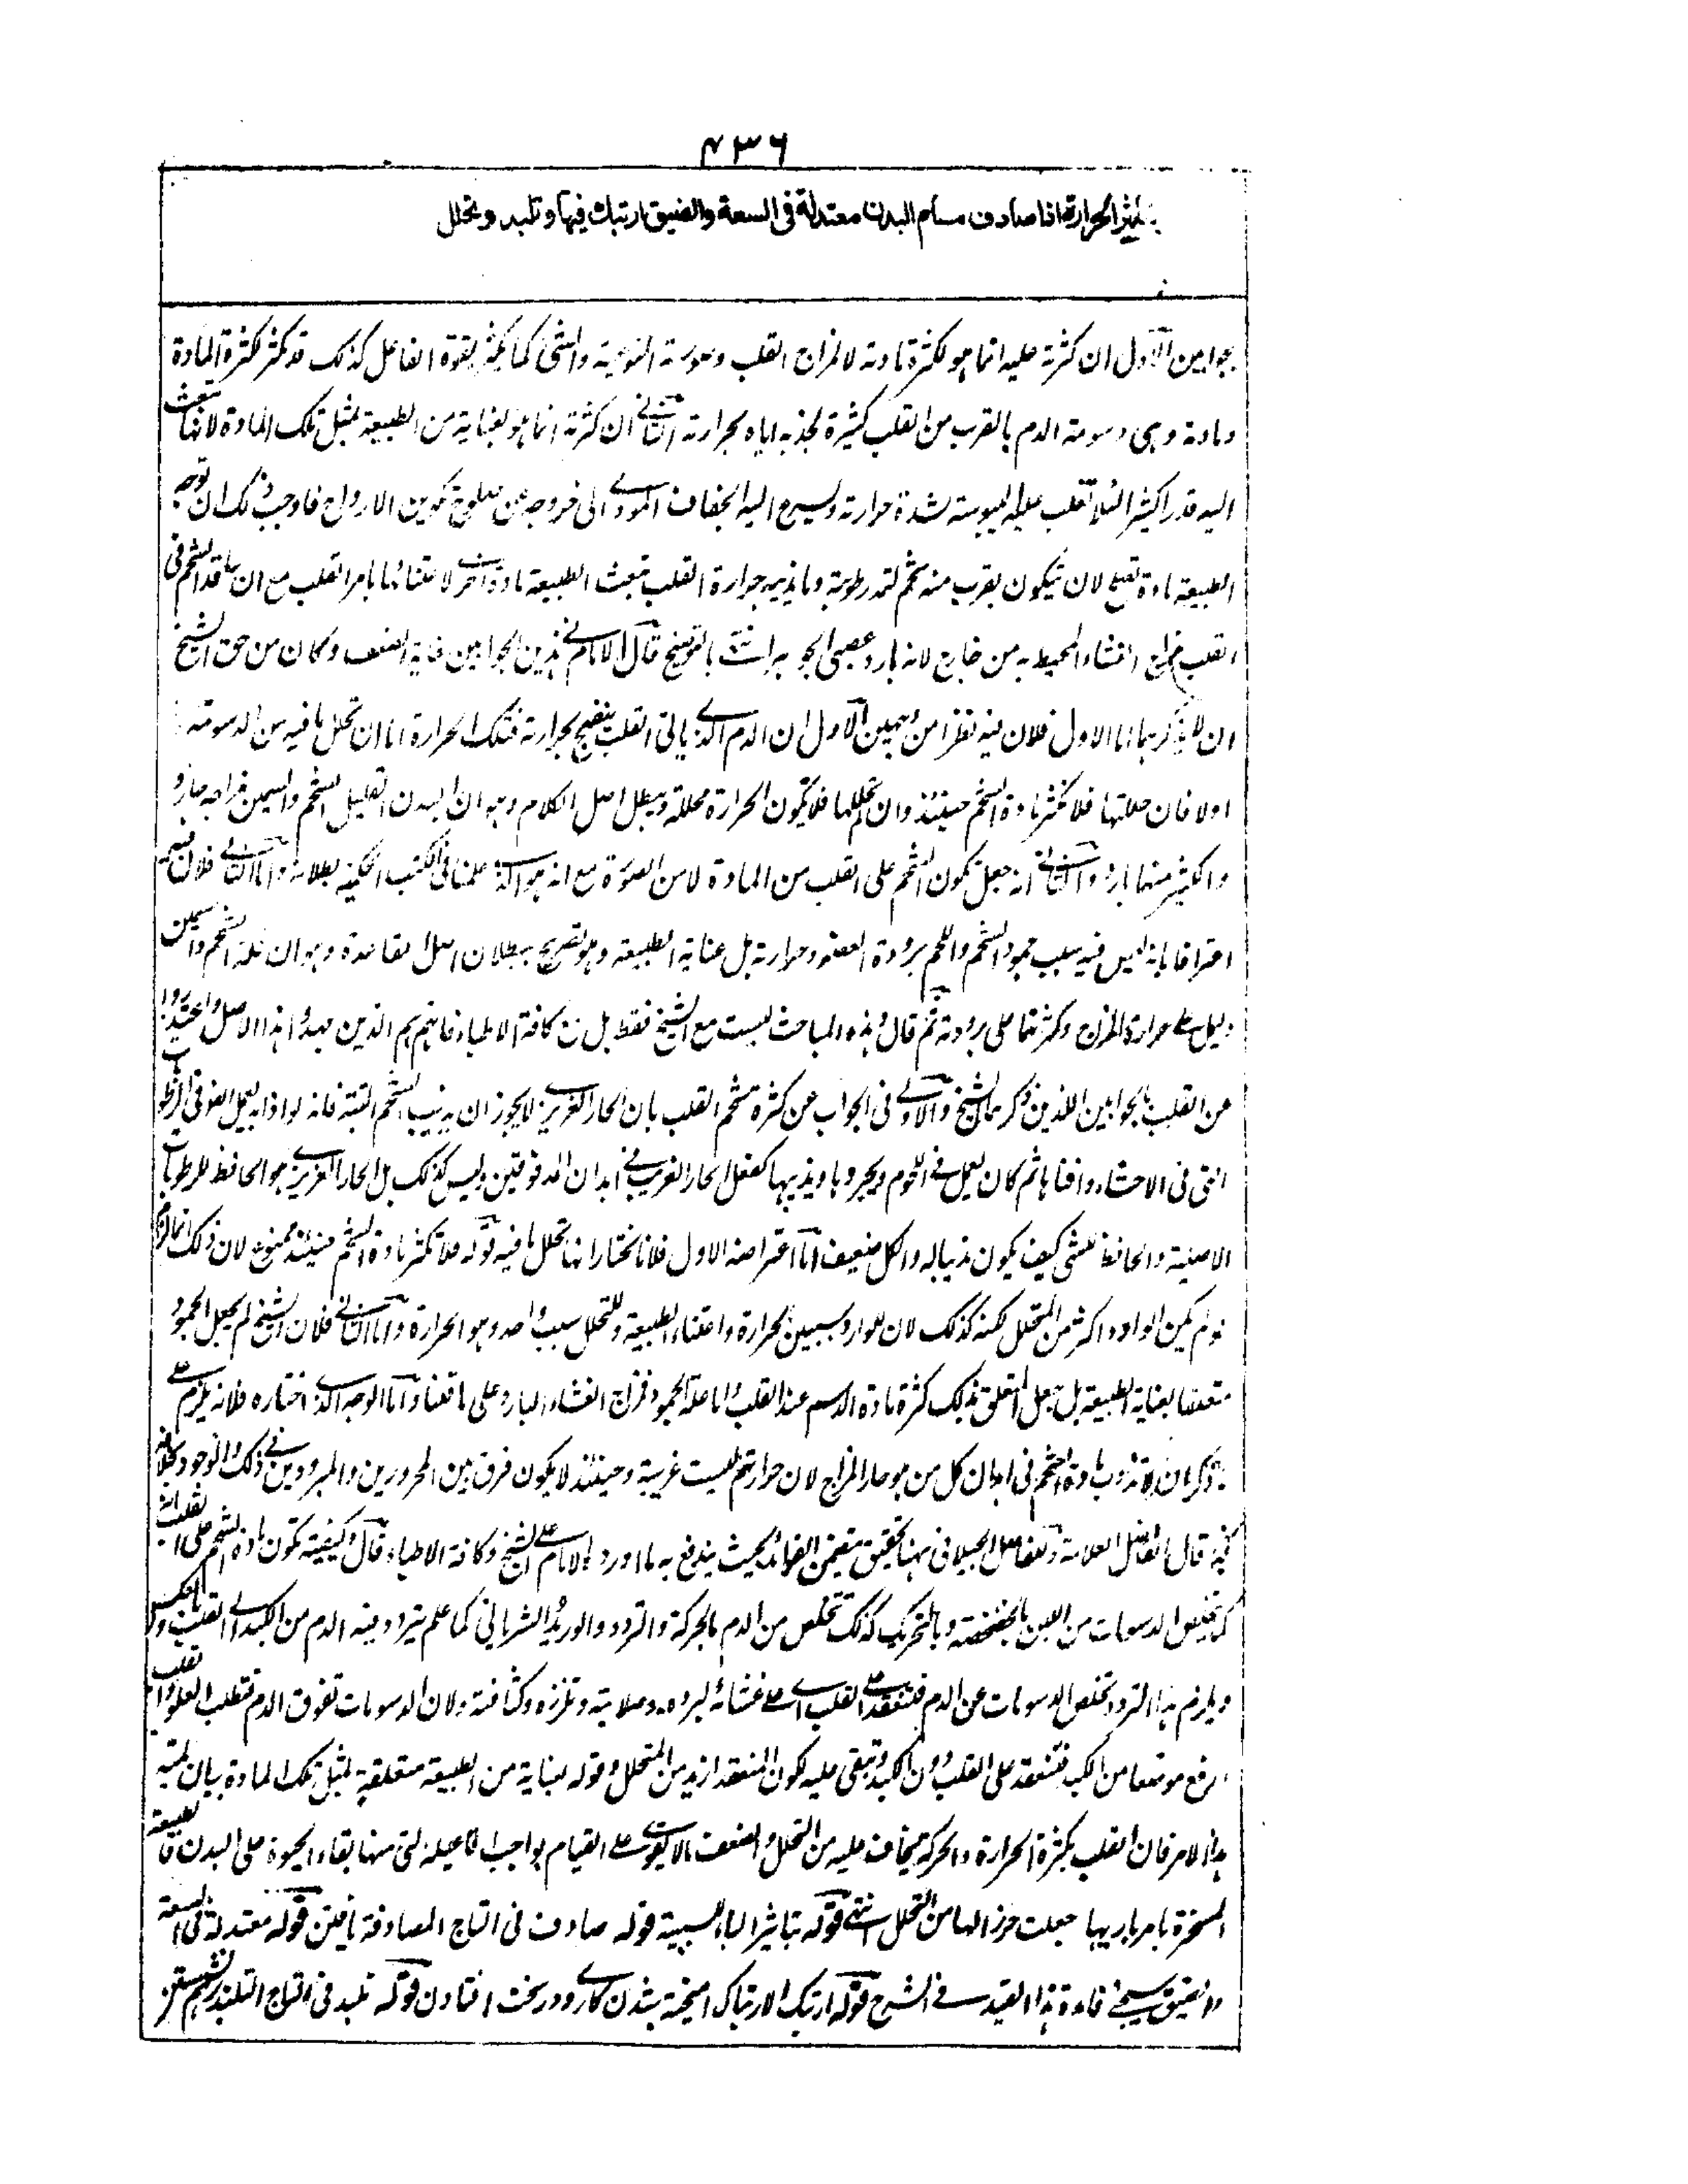 ۴۳۶
بتاثير الحرارة اذا صادف مسام البدن معتدلة فى السعة والضيق ارتبك فيها وتلبد وتحلل
بجوابين الاول ان كثرته عليه انما هو لكثرة مادته لا لمزاج القلب وصورته النوعية والشئ كما يكثر بقوة الفاعل كذلك قد يكثر لكثرة المادة
ومادته وهى دسومة الدم بالقرب من القلب كثيرة لجذبه اياه بحرارته الثانى ان كثرته انما هو لعناية من الطبيعة بمثل تلك المادة لانها تبعث
اليه قدرا كثيرا لئلا تغلب عليه اليبوسة لشدة حرارته ويسرع اليه الجفاف المودى الى خروجه عن صلوح تكوين الارواح فاوجب ذلك ان توجه
الطبيعة مادة تصلح لان يتكون بقرب منه شحم لتمد رطوبته وما يذيبه حرارة القلب تبعث الطبيعة مادة اخرى لاعتنائها بامر القلب مع ان عاقد الشحم فى
القلب مزاج الغشاء المحيط به من خارج لانه بارد عصبى الجوهر انتهى بالتوضيح قال الامام فى هذين الجوابين غاية الضعف وكان من حق الشيخ
ان لا يذكرهما اما الاول فلان فيه نظرا من وجهين الاول ان الدم الذى ياتى القلب ينضج بحرارته فتلك الحرارة اما ان تحلل ما فيه من الدسومة
اولا فان حللتها فلا تكثر مادة الشحم حينئذ وان لم تحللها فلا تكون الحرارة محللة ويبطل اصل الكلام وهو ان البدن القليل الشحم والسمين مزاجه حار و
والكثير منهما بارد والثانى انه جعل تكون الشحم على القلب من المادة لا من الصورة مع انه هو الذى علمنا فى الكتب الحكمية بطلانه واما الثانى فلان فيه
اعترافا بانه ليس فيه سبب جمود الشحم واللحم برودة العضو وحرارته بل عناية الطبيعة وهو تصريح ببطلان اصل القاعدة وهو ان قلة الشحم والسمين
دليل على حرارة المزاج وكثرتهما على برودته ثم قال وهذه المباحث ليست مع الشيخ فقط بل مع كافة الاطباء فانهم هم الذين مهدوا هذا الاصل واعتذروا
عن القلب بالجوابين اللذين ذكرهما الشيخ والاولى فى الجواب عن كثرة شحم القلب بان الحار الغريزى لا يجوز ان يذيب الشحم البتة فانه لو اذابه لعمل العفونة فى الرطوبات
التى فى الاحشاء وافناها ثم كان يعمل فى اللحوم ويجردها ويذيبها كفعل الحار الغريب فى ابدان المدقوقين وليس كذلك بل الحار الغريزى هو الحافظ للرطوبات
الاصلية والحافظ للشئ كيف يكون مذيبا له والكل ضعيف اما اعتراضه الاول فلانا نختار انها تحلل ما فيه قوله فلا تكثر مادة الشحم حينئذ ممنوع لان ذلك انما يلزم
لو لم يكن الوارد اكثر من المتحلل لكنه كذلك لان للوارد سببين الحرارة واعتناء الطبيعة وللتحلل سبب واحد وهو الحرارة واما الثانى فلان الشيخ لم يجعل الجمود
متعلقا بعناية الطبيعة بل جعل المتعلق بذلك كثرة مادة الدسم عند القلب واما علة الجمود فمزاج الغشاء البارد على ما قلنا واما الوجه الذى اختاره فلانه يلزم على
ما ذكر ان لا تذوب مادة الشحم فى ابدان كل من هو حار المزاج لان حرارتهم ليست غريبة وحينئذ لا يكون فرق بين المحرورين والمبرودين فى ذلك والوجود بخلافه
قال الفاضل العلامة وللفاضل الجيلانى ههنا تحقيق متضمن الفوائد بحيث يندفع به ما اورده الامام على الشيخ وكافة الاطباء قال وكيفية تكون مادة الشحم على القلب انه
كما تخلص الدسومات من اللبن بالخضخضة وبالتحريك كذلك تتخلص من الدم بالحركة والتردد والوريد الشريانى كما علم يتردد فيه الدم من الكبد الى القلب وبالعكس
ويلزم هذا التردد تخلص الدسومات عن الدم فتنعقد على القلب اى على غشائه لبرده وصلابته وتلززه وكثافته ولان الدسومات تفوق الدم فتطلب العلو والقلب
ارفع موضعا من الكبد فتنعقد على القلب دون الكبد وتبقى عليه لكون المنعقد ازيد من المتحلل وقوله بعناية من الطبيعة متعلقة بمثل تلك المادة بيان لمية
هذا الامر فان القلب بكثرة الحرارة والحركة يخاف عليه من التحلل والضعف ما لا يقوى على القيام بواجب افاعيله التى منها بقاء الحيوة على البدن فالطبيعة
المسخرة بامر باريها جعلت حرزا لها من التحلل انتهى قوله بتاثير الباء للسببية قوله صادف فى التاج المصادفة يافتن قوله معتدلة فى السعة
والضيق سيجئ فائدة هذا القيد فى الشرح قوله ارتبك الارتباك آميخته شدن كار ودر سخت افتادن قوله تلبد فى التاج التلبد برهم نشستن